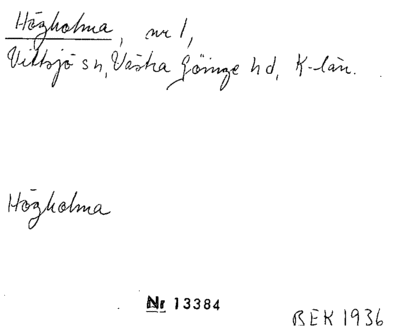 Högholma, nr 1,
Vittsjö sn, Västra Göinge hd, K-län.
Högholma
Nr 13384
BEK 1936